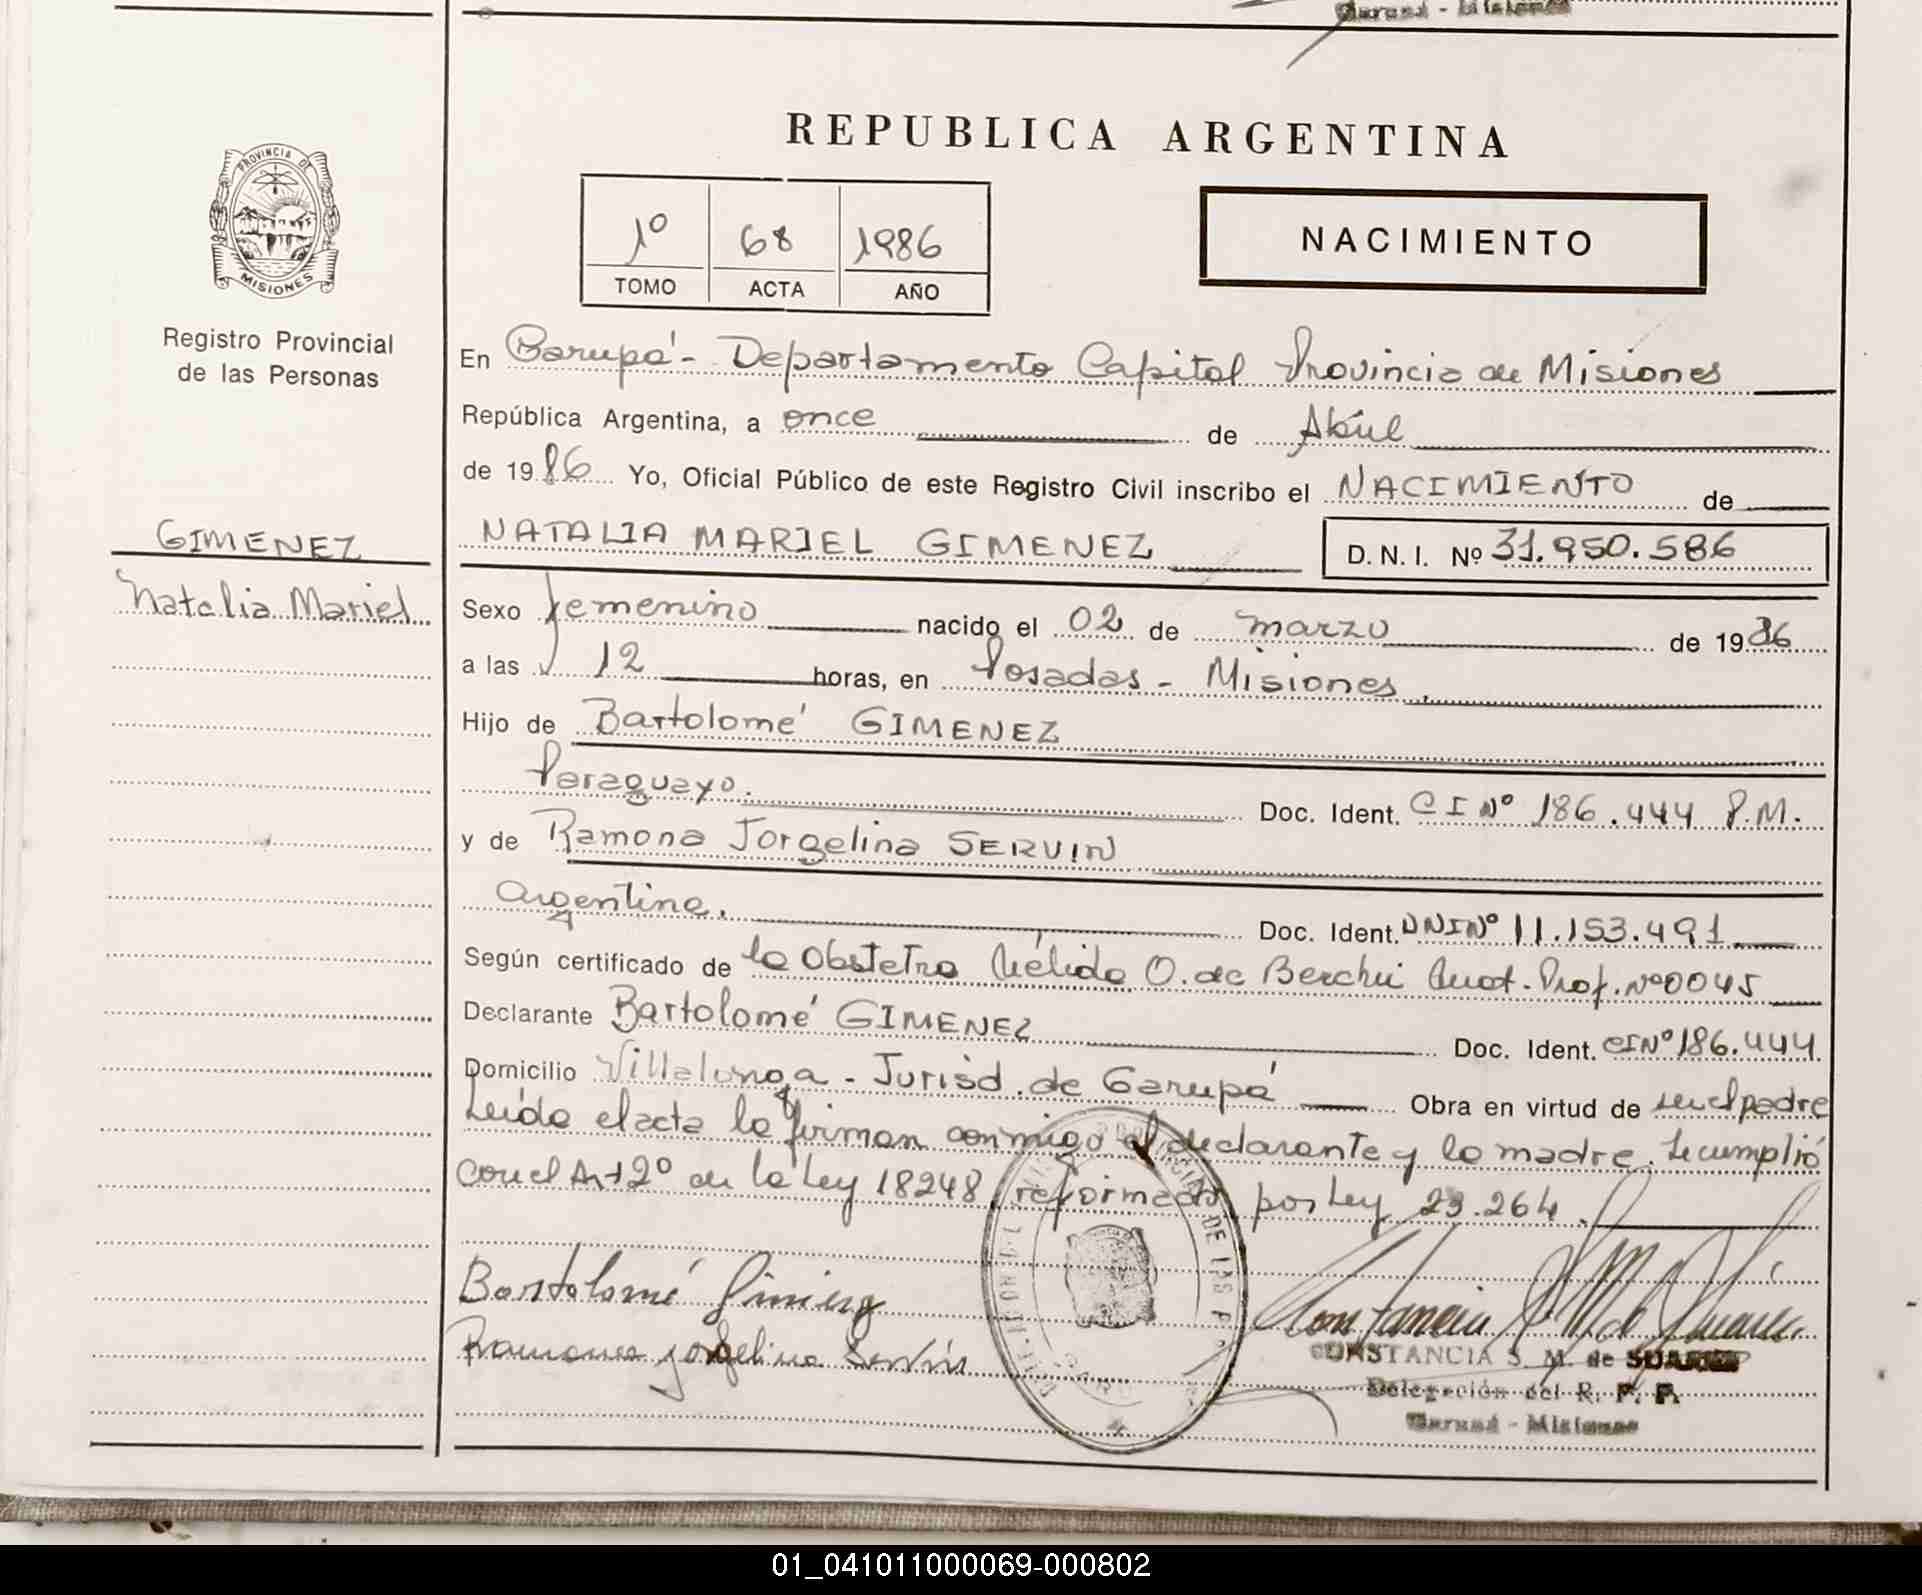 Garupá - Misiones
REPUBLICA ARGENTINA
PROVINCIA DE
MISIONES
Registro Provincial
de las Personas
1º 68 1986
TOMO ACTA AÑO
NACIMIENTO
En Garupá - Departamento Capital Provincia de Misiones
República Argentina, a once de Abril
de 1986 Yo, Oficial Público de este Registro Civil inscribo el NACIMIENTO de
GIMENEZ
NATALIA MARIEL GIMENEZ D.N.I. Nº 31.950.586
Natalia Mariel
Sexo femenino nacido el 02 de marzo de 1986
a las 12 horas, en Posadas - Misiones.
Hijo de Bartolomé GIMENEZ
Paraguayo. Doc. Ident. CI Nº 186.444 P.M.
y de Ramona Jorgelina SERVIN
Argentina. Doc. Ident. DNI Nº 11.153.491
Según certificado de la Obstetra Nélida O. de Prof. Nº 0045
Declarante Bartolomé GIMENEZ Doc. Ident. CI Nº 186.444
Domicilio Villalonga - Jurisd. de Garupá Obra en virtud de ser el padre
Leída el acta la firman conmigo el declarante y la madre. Se cumplió
con el Art 2º de la Ley 18248 reformado por Ley 23.264.
Bartolomé Gimenez
Ramona Jorgelina Servin
CONSTANCIA S. M. de SUAREZ
Delegación del R. P. P.
Garupá - Misiones
01_041011000069-000802